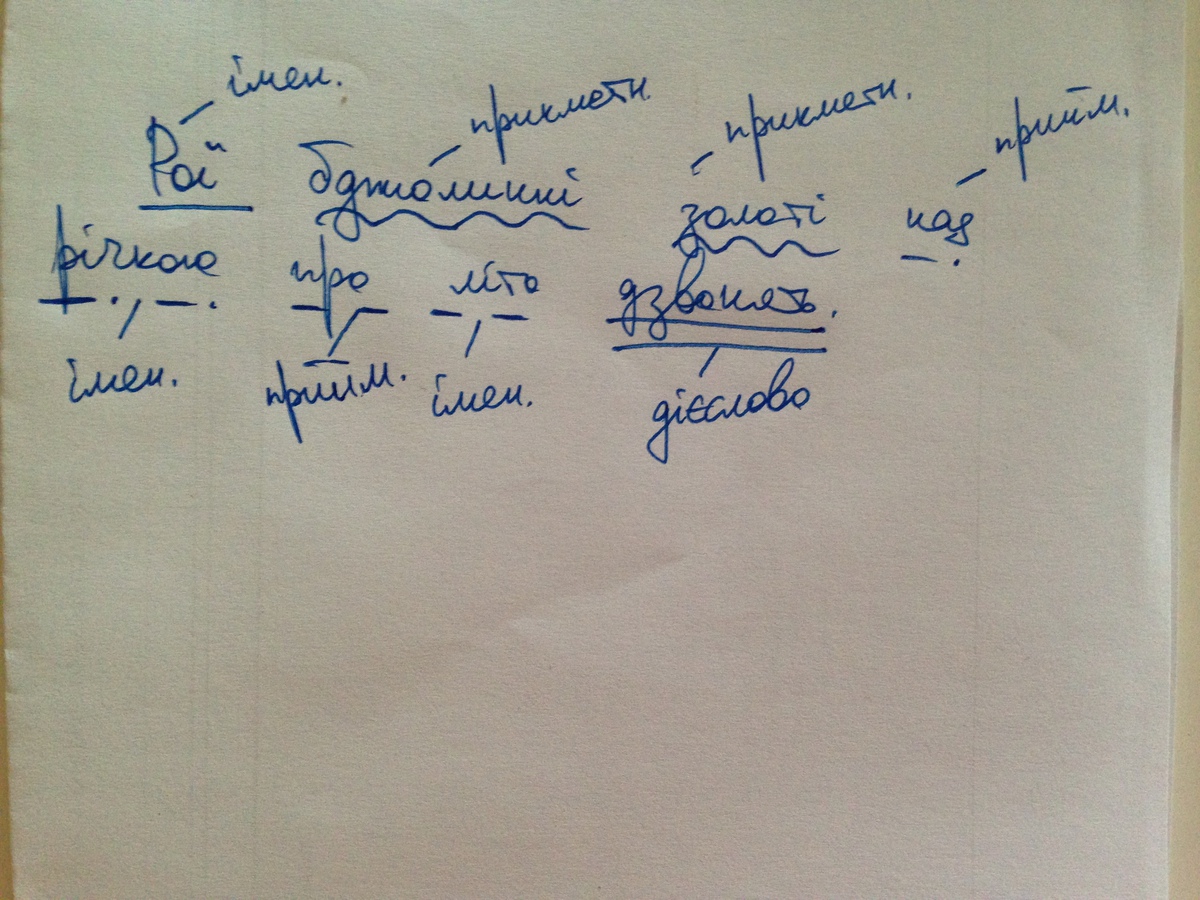 імен. прикметн. прикметн. прийм.
Рої бджолинні золоті над
річкою про літо дзвонять.
імен. прийм. імен. дієслово